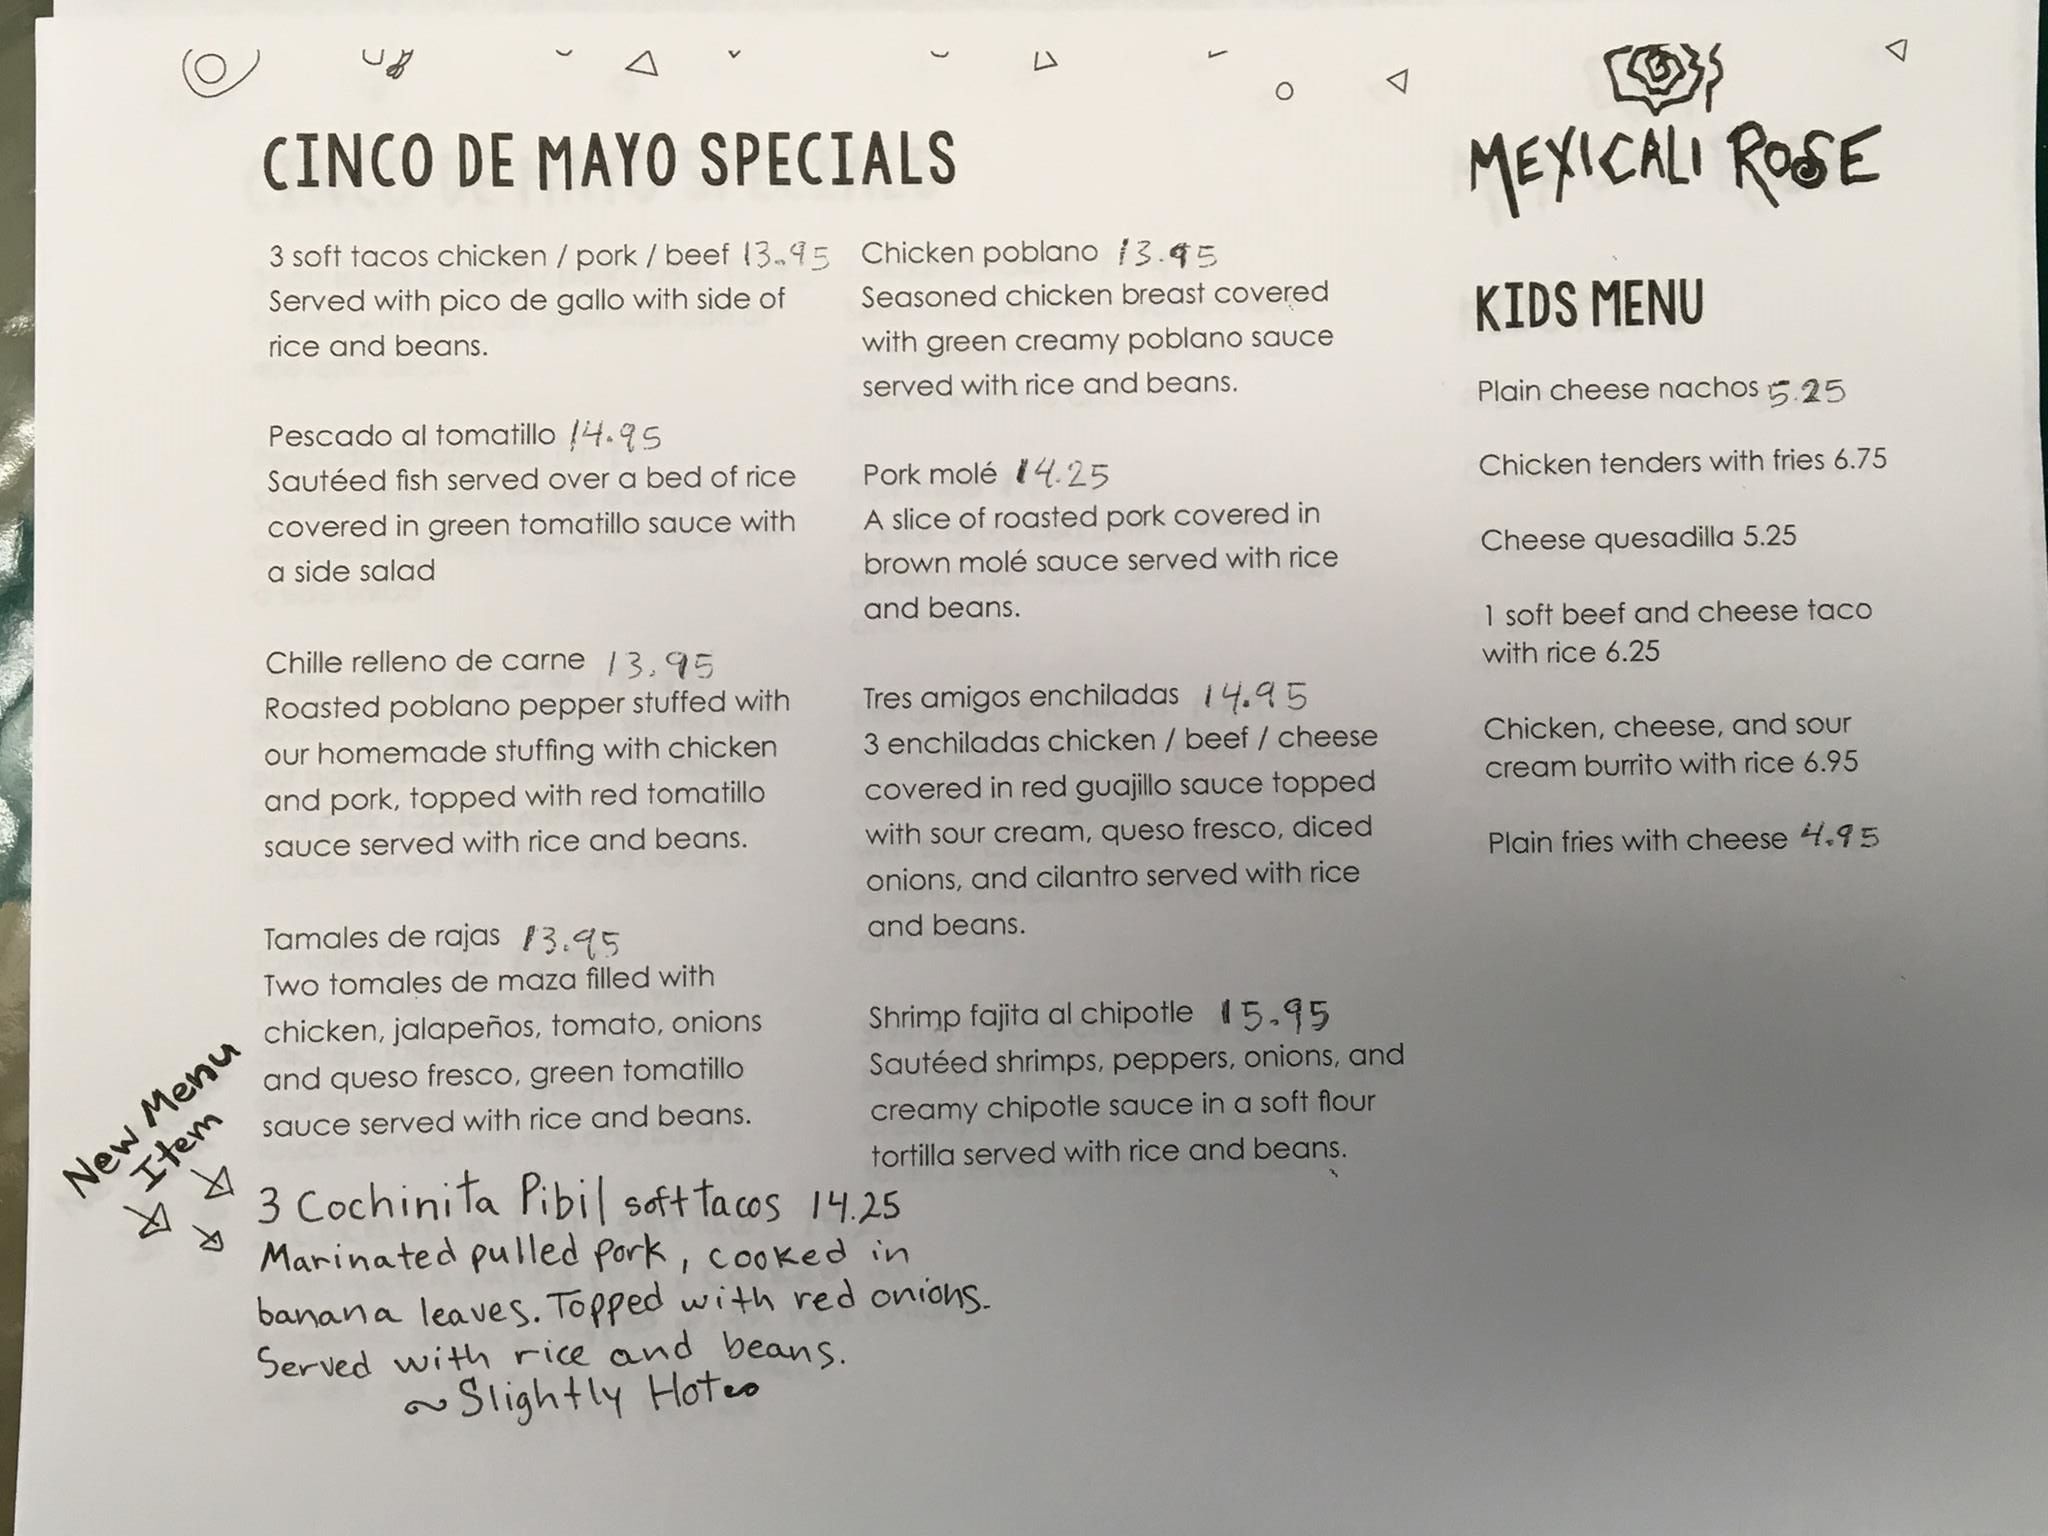 CINCO DE MAYO SPECIALS
3 soft tacos chicken / pork / beef 13.95
Served with pico de gallo with side of
rice and beans.
Pescado al tomatillo 14.95
Sautéed fish served over a bed of rice
covered in green tomatillo sauce with
a side salad
Chille relleno de carne 13.95
Roasted poblano pepper stuffed with
our homemade stuffing with chicken
and pork, topped with red tomatillo
sauce served with rice and beans.
Tamales de rajas 13.95
Two tomales de maza filled with
chicken, jalapeños, tomato, onions
and queso fresco, green tomatillo
sauce served with rice and beans.
New Menu
Item
3 Cochinita Pibil soft tacos 14.25
Marinated pulled pork, cooked in
banana leaves. Topped with red onions.
Served with rice and beans.
~Slightly Hot~
Chicken poblano 13.95
Seasoned chicken breast covered
with green creamy poblano sauce
served with rice and beans.
Pork molé 14.25
A slice of roasted pork covered in
brown molé sauce served with rice
and beans.
Tres amigos enchiladas 14.95
3 enchiladas chicken / beef / cheese
covered in red guajillo sauce topped
with sour cream, queso fresco, diced
onions, and cilantro served with rice
and beans.
Shrimp fajita al chipotle 15.95
Sautéed shrimps, peppers, onions, and
creamy chipotle sauce in a soft flour
tortilla served with rice and beans.
MEXICALI ROSE
KIDS MENU
Plain cheese nachos 5.25
Chicken tenders with fries 6.75
Cheese quesadilla 5.25
1 soft beef and cheese taco
with rice 6.25
Chicken, cheese, and sour
cream burrito with rice 6.95
Plain fries with cheese 4.95